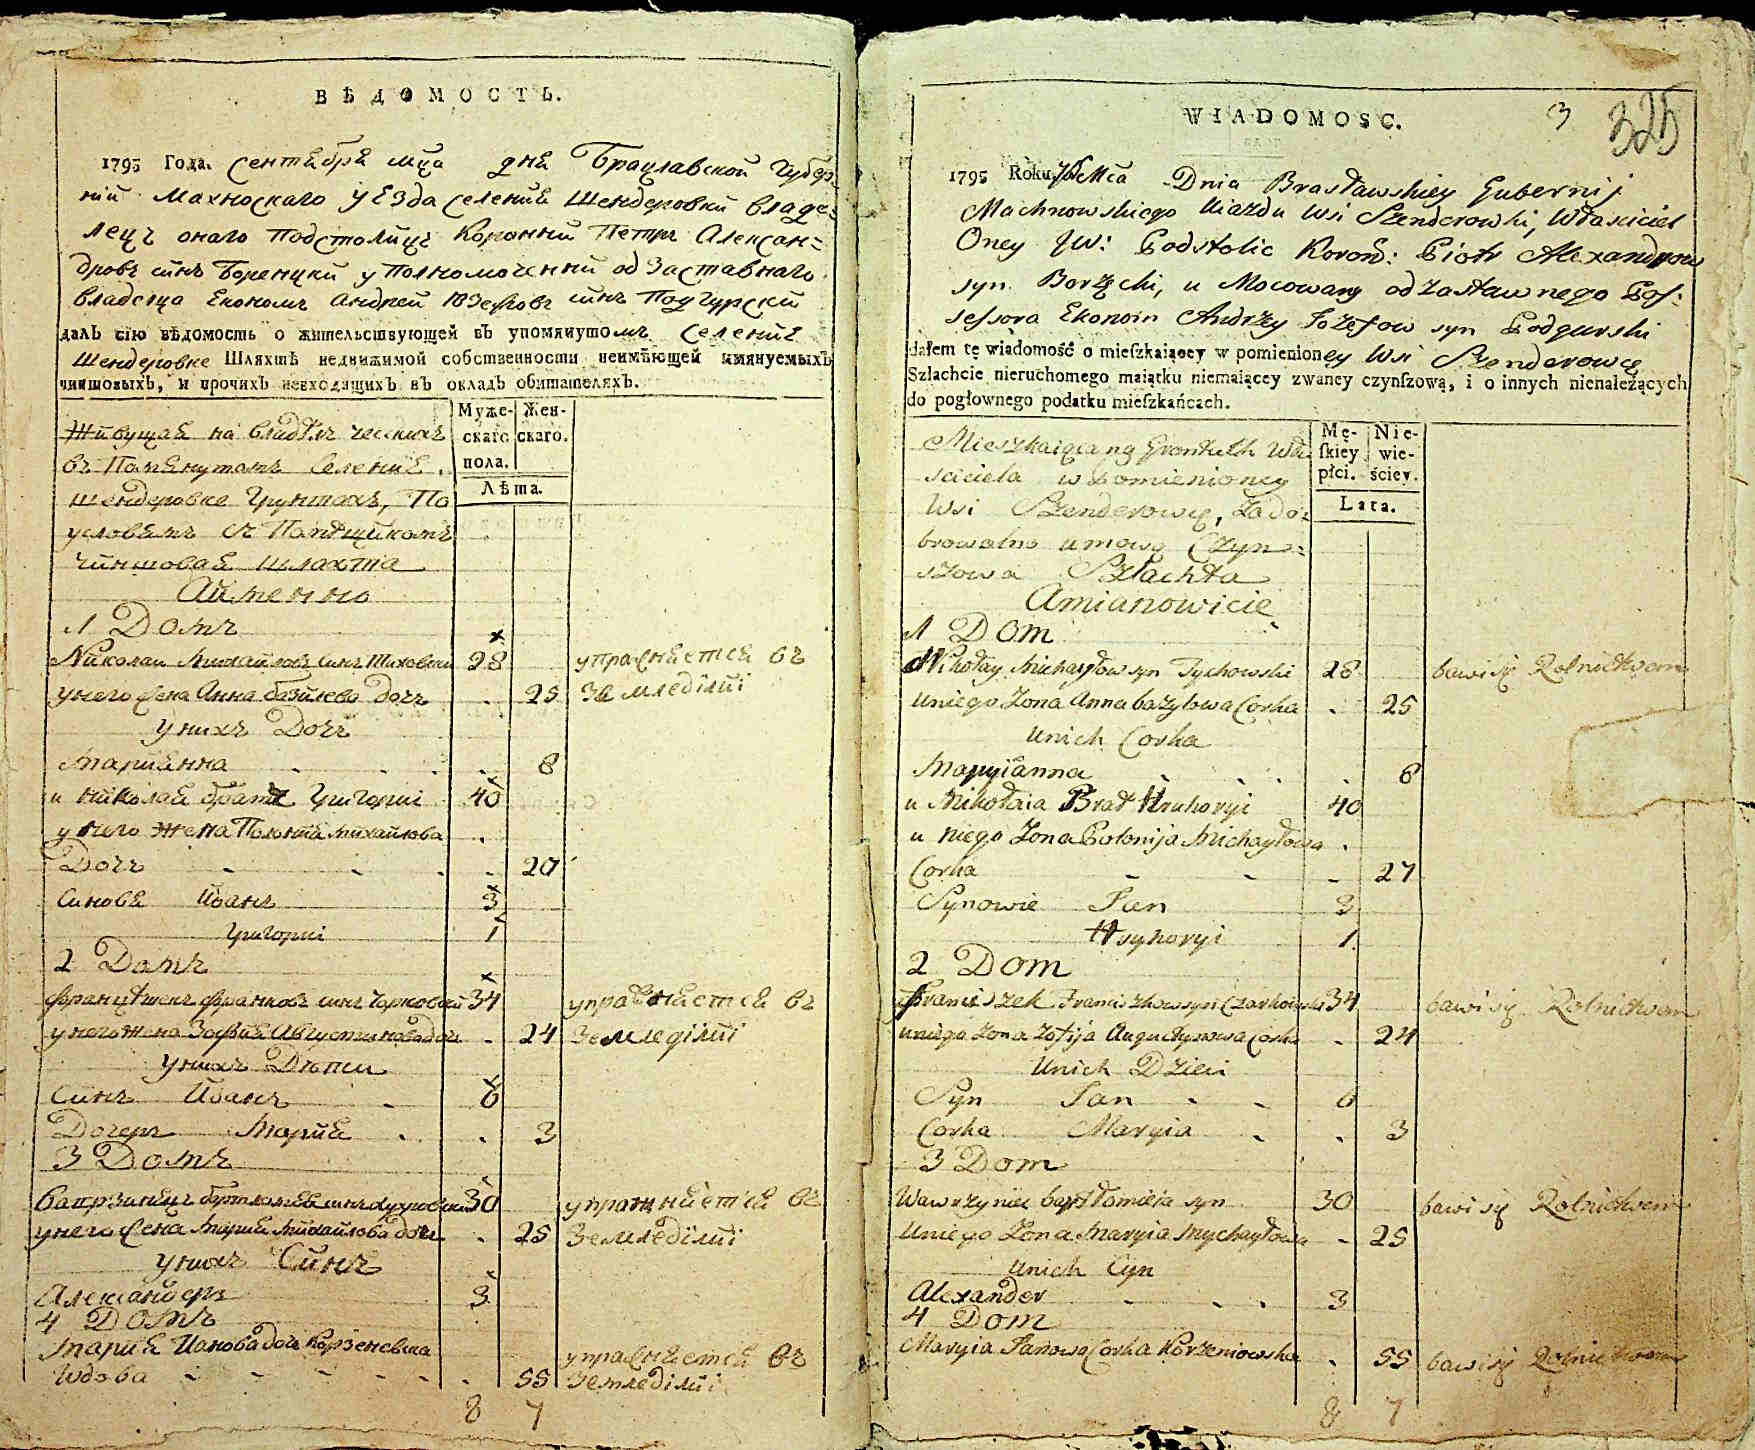 ВѢДОМОСТЬ.
1795 Года. Сентября мца дня Брацлавской Губер-
нии Махновскаго уезда селения Шендеровки владе-
лецъ онаго Подстолицъ Коронний Петръ Алексан-
дровъ синъ и уполномоченний од заставнаго
владелца Економъ Андрей Юзефовъ синъ Подгурский
далъ сію вѣдомость о жительствующей въ упомянутомъ селении
Шендеровке Шляхтѣ недвижимой собственности неимѣющей имянуемыхъ
чиншовыхъ, и прочихъ невходящихъ въ окладъ обитателяхъ.
Муже- Жен-
скаго скаго.
пола.
Лѣта.
Живущая на
въ Помянутомъ Селении
Шендеровке Грунтахъ, По
условиямъ съ Помещикомъ
Чиншовая шляхта
Аименно
1 Домъ
Николай Михайловъ синъ Тиховский 28 упражняется въ
у него жена Анна базилева дочъ 25 земледілиі
у нихъ Дочъ
Марианна 8
и николая братъ Григориі 40
у него жена Полония михайлова
Дочъ 20
Синове Иванъ 3
Григориі 1
2 Домъ
Францишекъ Франковъ синъ Чарковский 34 упражняется въ
у него жена Зофия Августинова дочъ 24 Земледілиі
у нихъ Дети
Синъ Иванъ 6
Дочеръ Мария 3
3 Домъ
бартломея синъ 30 упражняется въ
у него жена Мария Михайлова дочъ 25 Земледілиі
у нихъ Синъ
Александеръ 3
4 Домъ
Мария Янова дочъ Корженевска упражняется въ
Wдова 55 Земледілиі
8 7
WIADOMOSC.
3 325
1795 Roku, Mca Dnia Brasławskiey Gubernij
Machnowskiego Uiazdu Wsi Szenderowki, Właściciel
Oney JW: Podstolic Koron: Piotr Alexandrow
syn Borzęcki, u Mocowany od Zastawnego Pos:
sessora Ekonom Andrzy Jozefow syn Podgurski
dałem tę wiadomość o mieſzkaiącey w pomienioney Wsi Szenderowce
Szlachcie nieruchomego maiątku niemaiącey zwaney czynſzową, i o innych nienależących
do pogłownego podatku mieſzkańcach.
Mę- Nie-
ſkiey wie-
płci. ściey.
Lata.
Mieszkaiąca na Gruntach Wła-
sciciela w Pomienioney
Wsi Szenderowce, za do:
browolno umowo Czyn:
szowa Szlachta
Amianowicie
1 Dom
Mikołay Michayłow syn Tychowski 28 bawi się Rolnictwem
u niego Zona Anna bazylowa Corka 25
u nich Corka
Maryianna 8
u Mikołaia Brat Hruhoryi 40
u niego Zona Polonija Michayłowa
Corka 27
Synowie Jan 3
Hryhoryi 1
2 Dom
Franciszek Franciszkow syn Czarkowski 34 bawi się Rolnictwem
u niego Zona Zofija Augustynowa Corka 24
u nich Dzieci
Syn Jan 6
Corka Maryia 3
3 Dom
Wawrzyniec bartłomieia syn 30 bawi się Rolnictwem
u niego Zona Maryia Mychayłowa 25
u nich Cyn
Alexander 3
4 Dom
Maryia Janowa Corka Korzeniowska 55 bawi się Rolnictwem
8 7